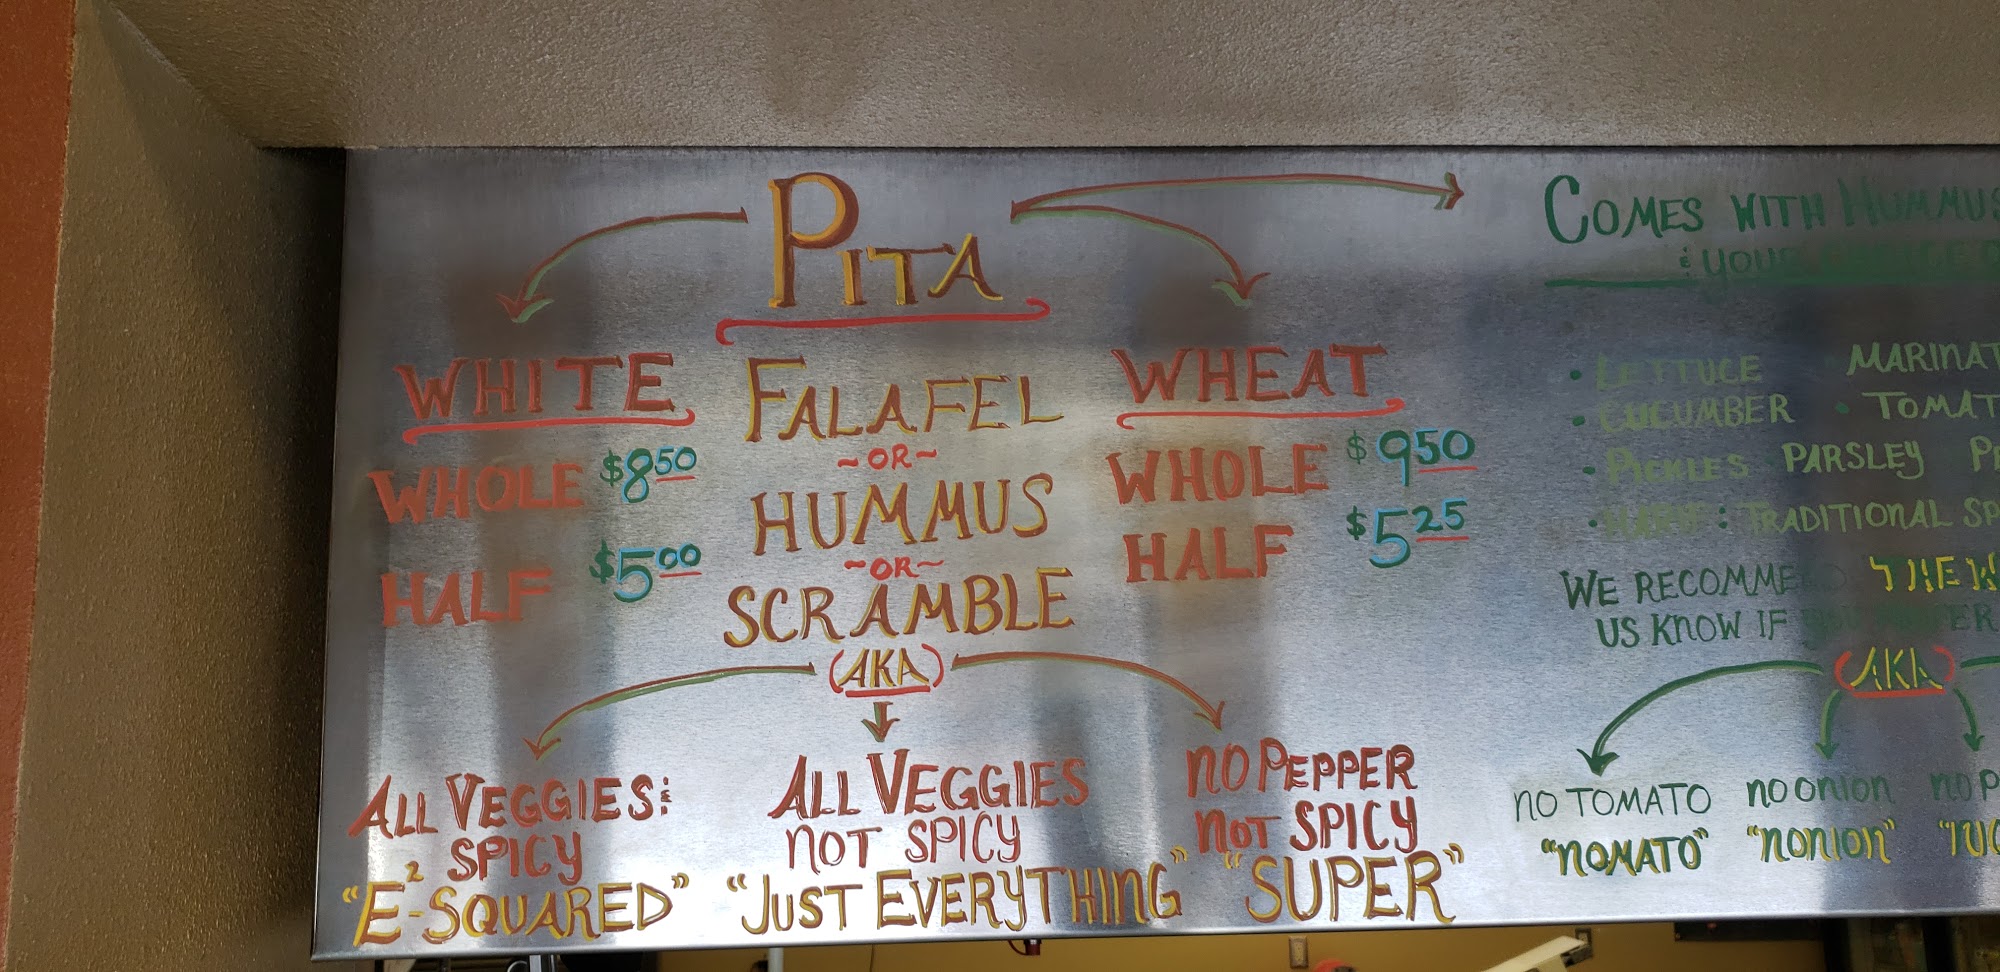 PITA
WHITE
WHOLE $8.50
HALF $5.00
FALAFEL
~OR~
HUMMUS
~OR~
SCRAMBLE
(AKA)
WHEAT
WHOLE $9.50
HALF $5.25
ALL VEGGIES &
SPICY
"E²-SQUARED"
ALL VEGGIES
NOT SPICY
"JUST EVERYTHING"
NO PEPPER
NOT SPICY
"SUPER"
COMES WITH HUMMUS
& YOUR
• LETTUCE MARINAT
• CUCUMBER • TOMAT
• PICKLES PARSLEY
: TRADITIONAL SP
WE RECOMMEND THE
US KNOW IF
(AKA)
NO TOMATO
"NOMATO"
NO ONION
"NONION"
NO P